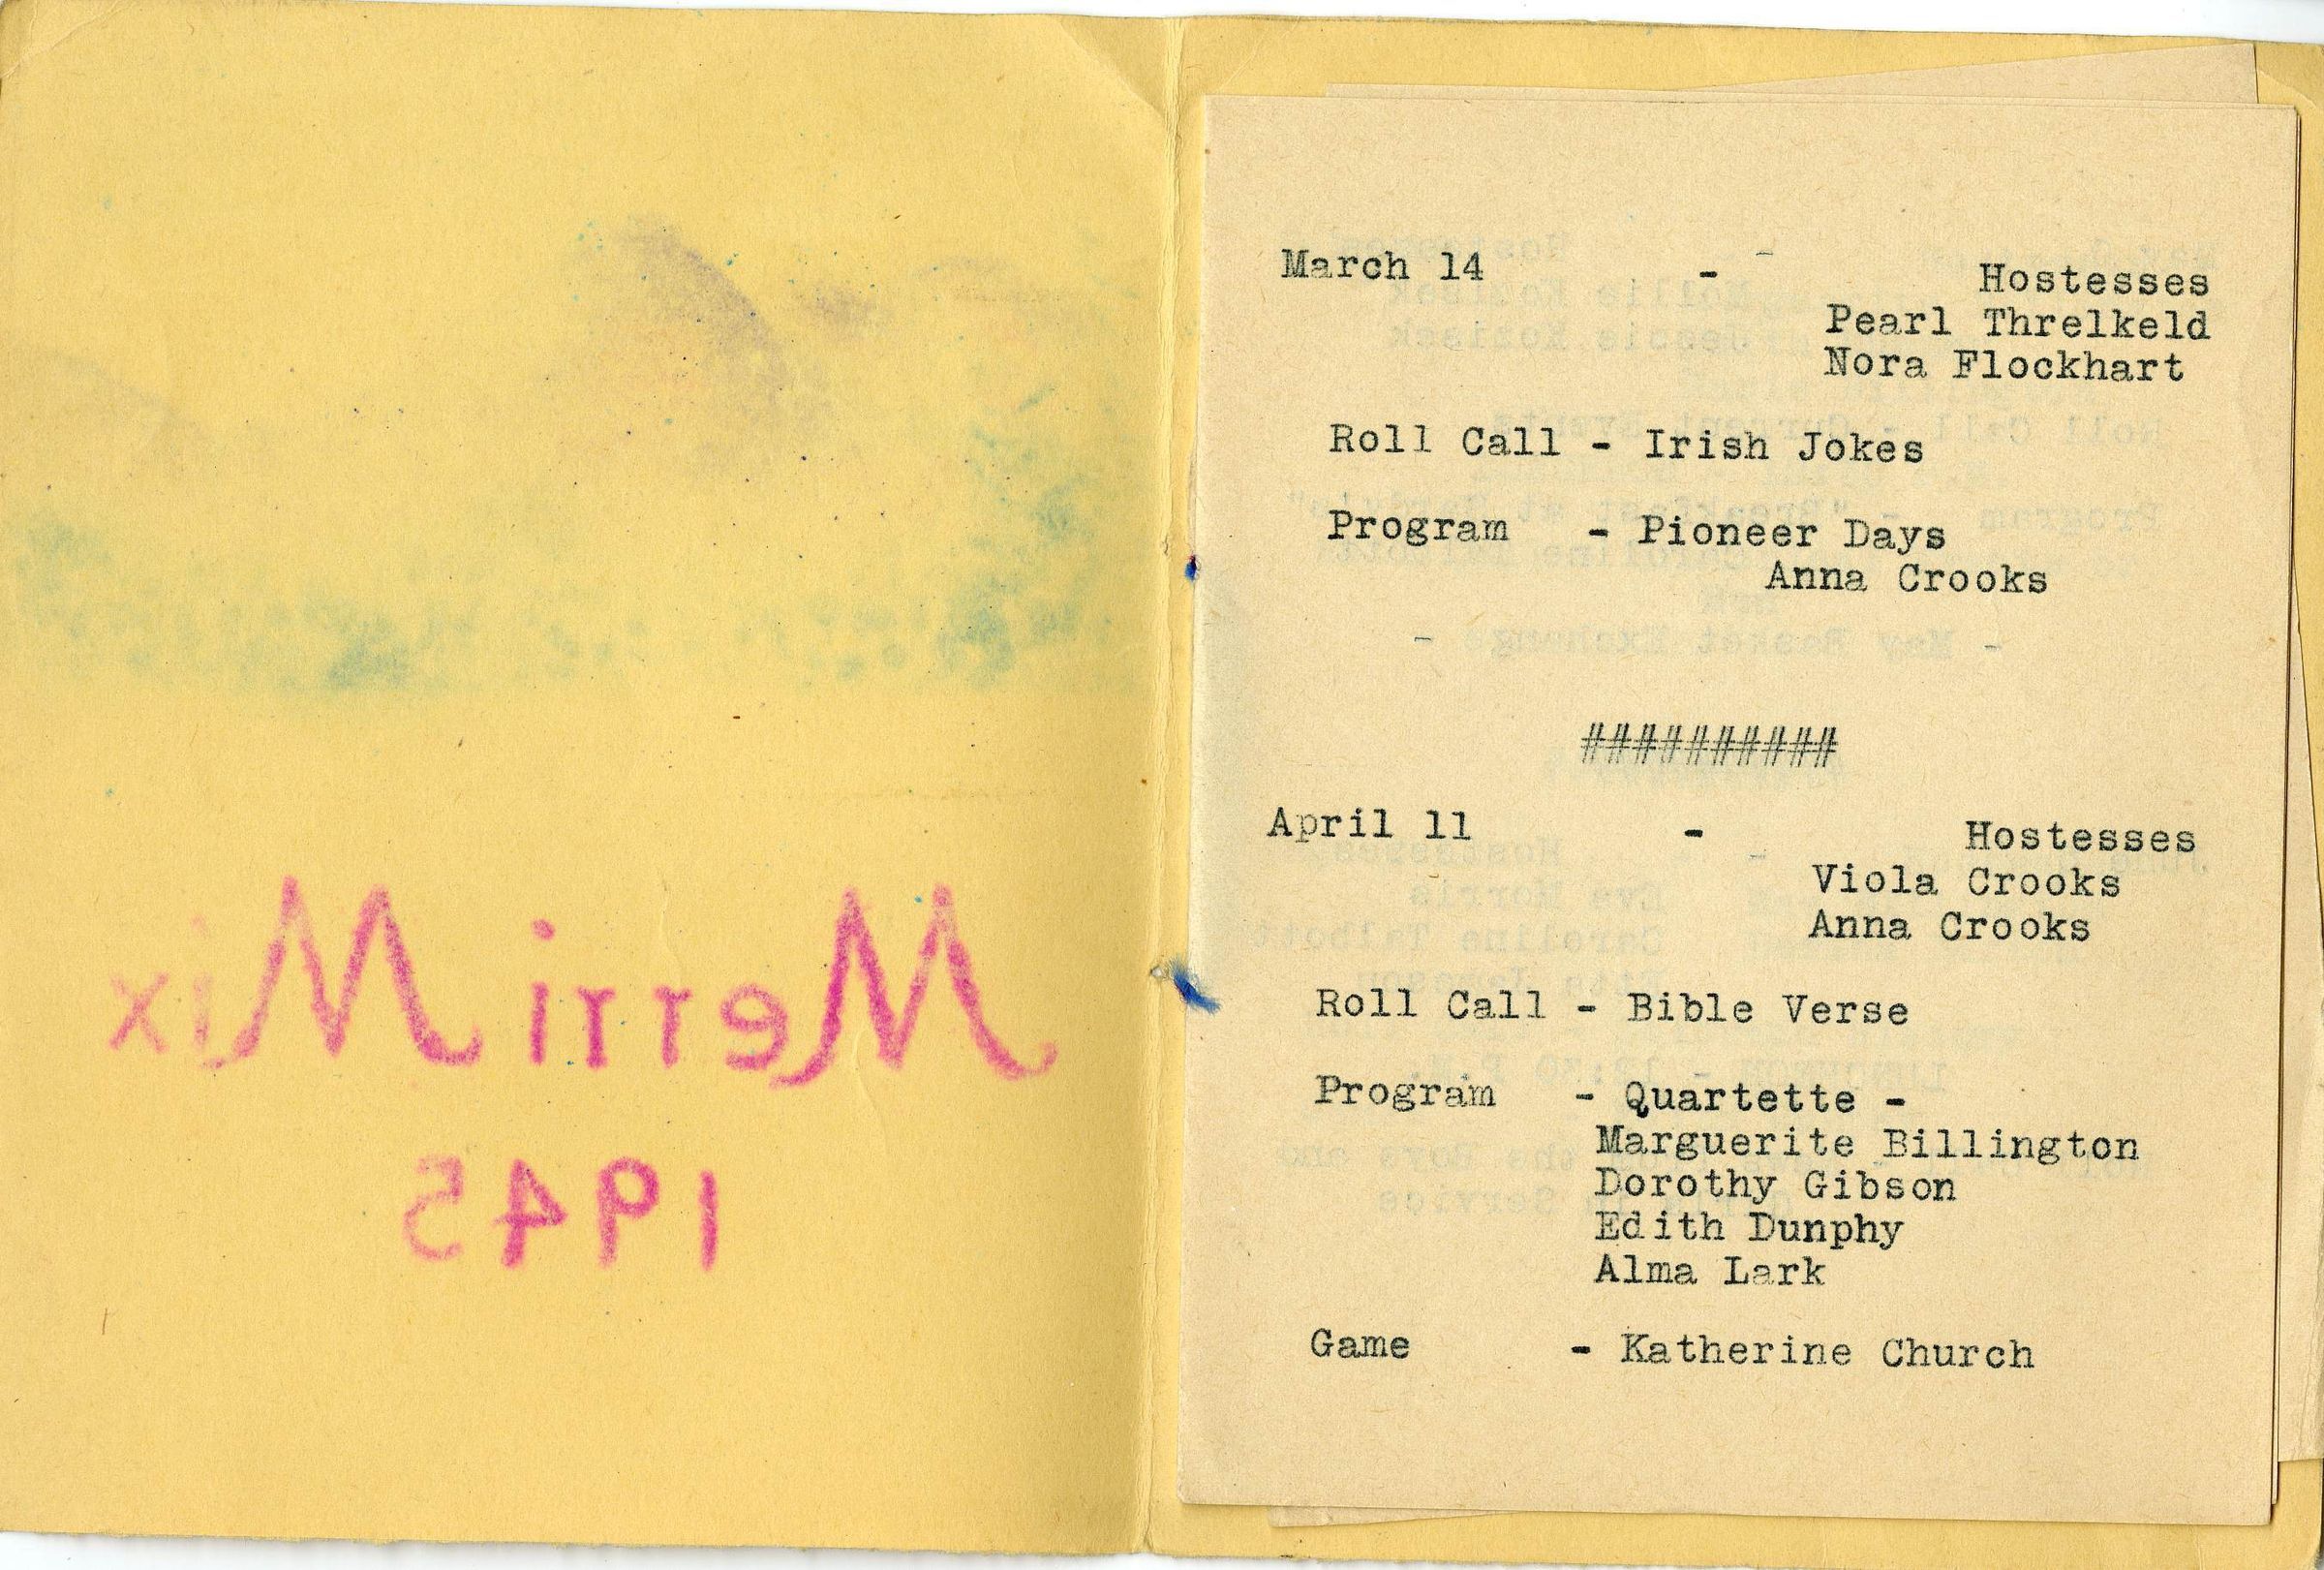 Merri Mix
1945
March 14 - Hostesses
Pearl Threlkeld
Nora Flockhart
Roll Call - Irish Jokes
Program - Pioneer Days
Anna Crooks
##########
April 11 - Hostesses
Viola Crooks
Anna Crooks
Roll Call - Bible Verse
Program - Quartette -
Marguerite Billington
Dorothy Gibson
Edith Dunphy
Alma Lark
Game - Katherine Church